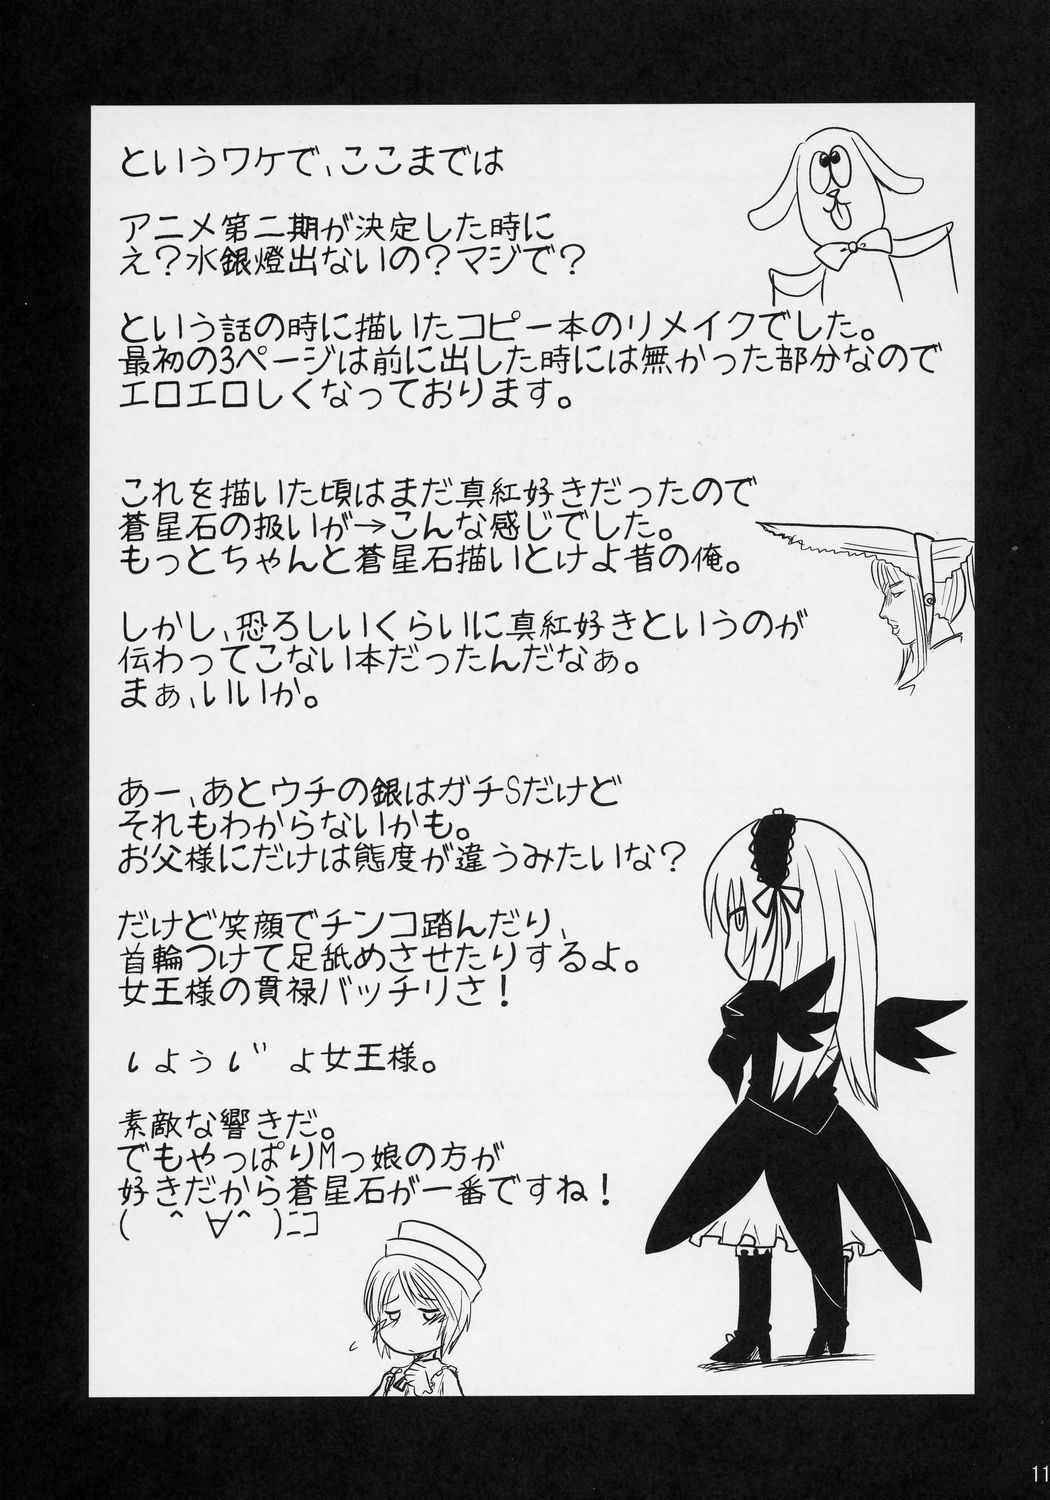 というワケで、ここまでは
アニメ第二期が決定した時に
え？水銀燈出ないの？マジで？
という話の時に描いたコピー本のリメイクでした。
最初の3ページは前に出した時には無かった部分なので
エロエロしくなっております。
これを描いた頃はまだ真紅好きだったので
蒼星石の扱いが→こんな感じでした。
もっとちゃんと蒼星石描いとけよ昔の俺。
しかし、恐ろしいくらいに真紅好きというのが
伝わってこない本だったんだなぁ。
まぁ、いいか。
あー、あとウチの銀はガチSだけど
それもわからないかも。
お父様にだけは態度が違うみたいな？
だけど笑顔でチンコ踏んだり、
首輪つけて足舐めさせたりするよ。
女王様の貫禄バッチリさ！
しょぅじょ女王様。
素敵な響きだ。
でもやっぱりMっ娘の方が
好きだから蒼星石が一番ですね！
( ＾∀＾)ﾆｺ
11